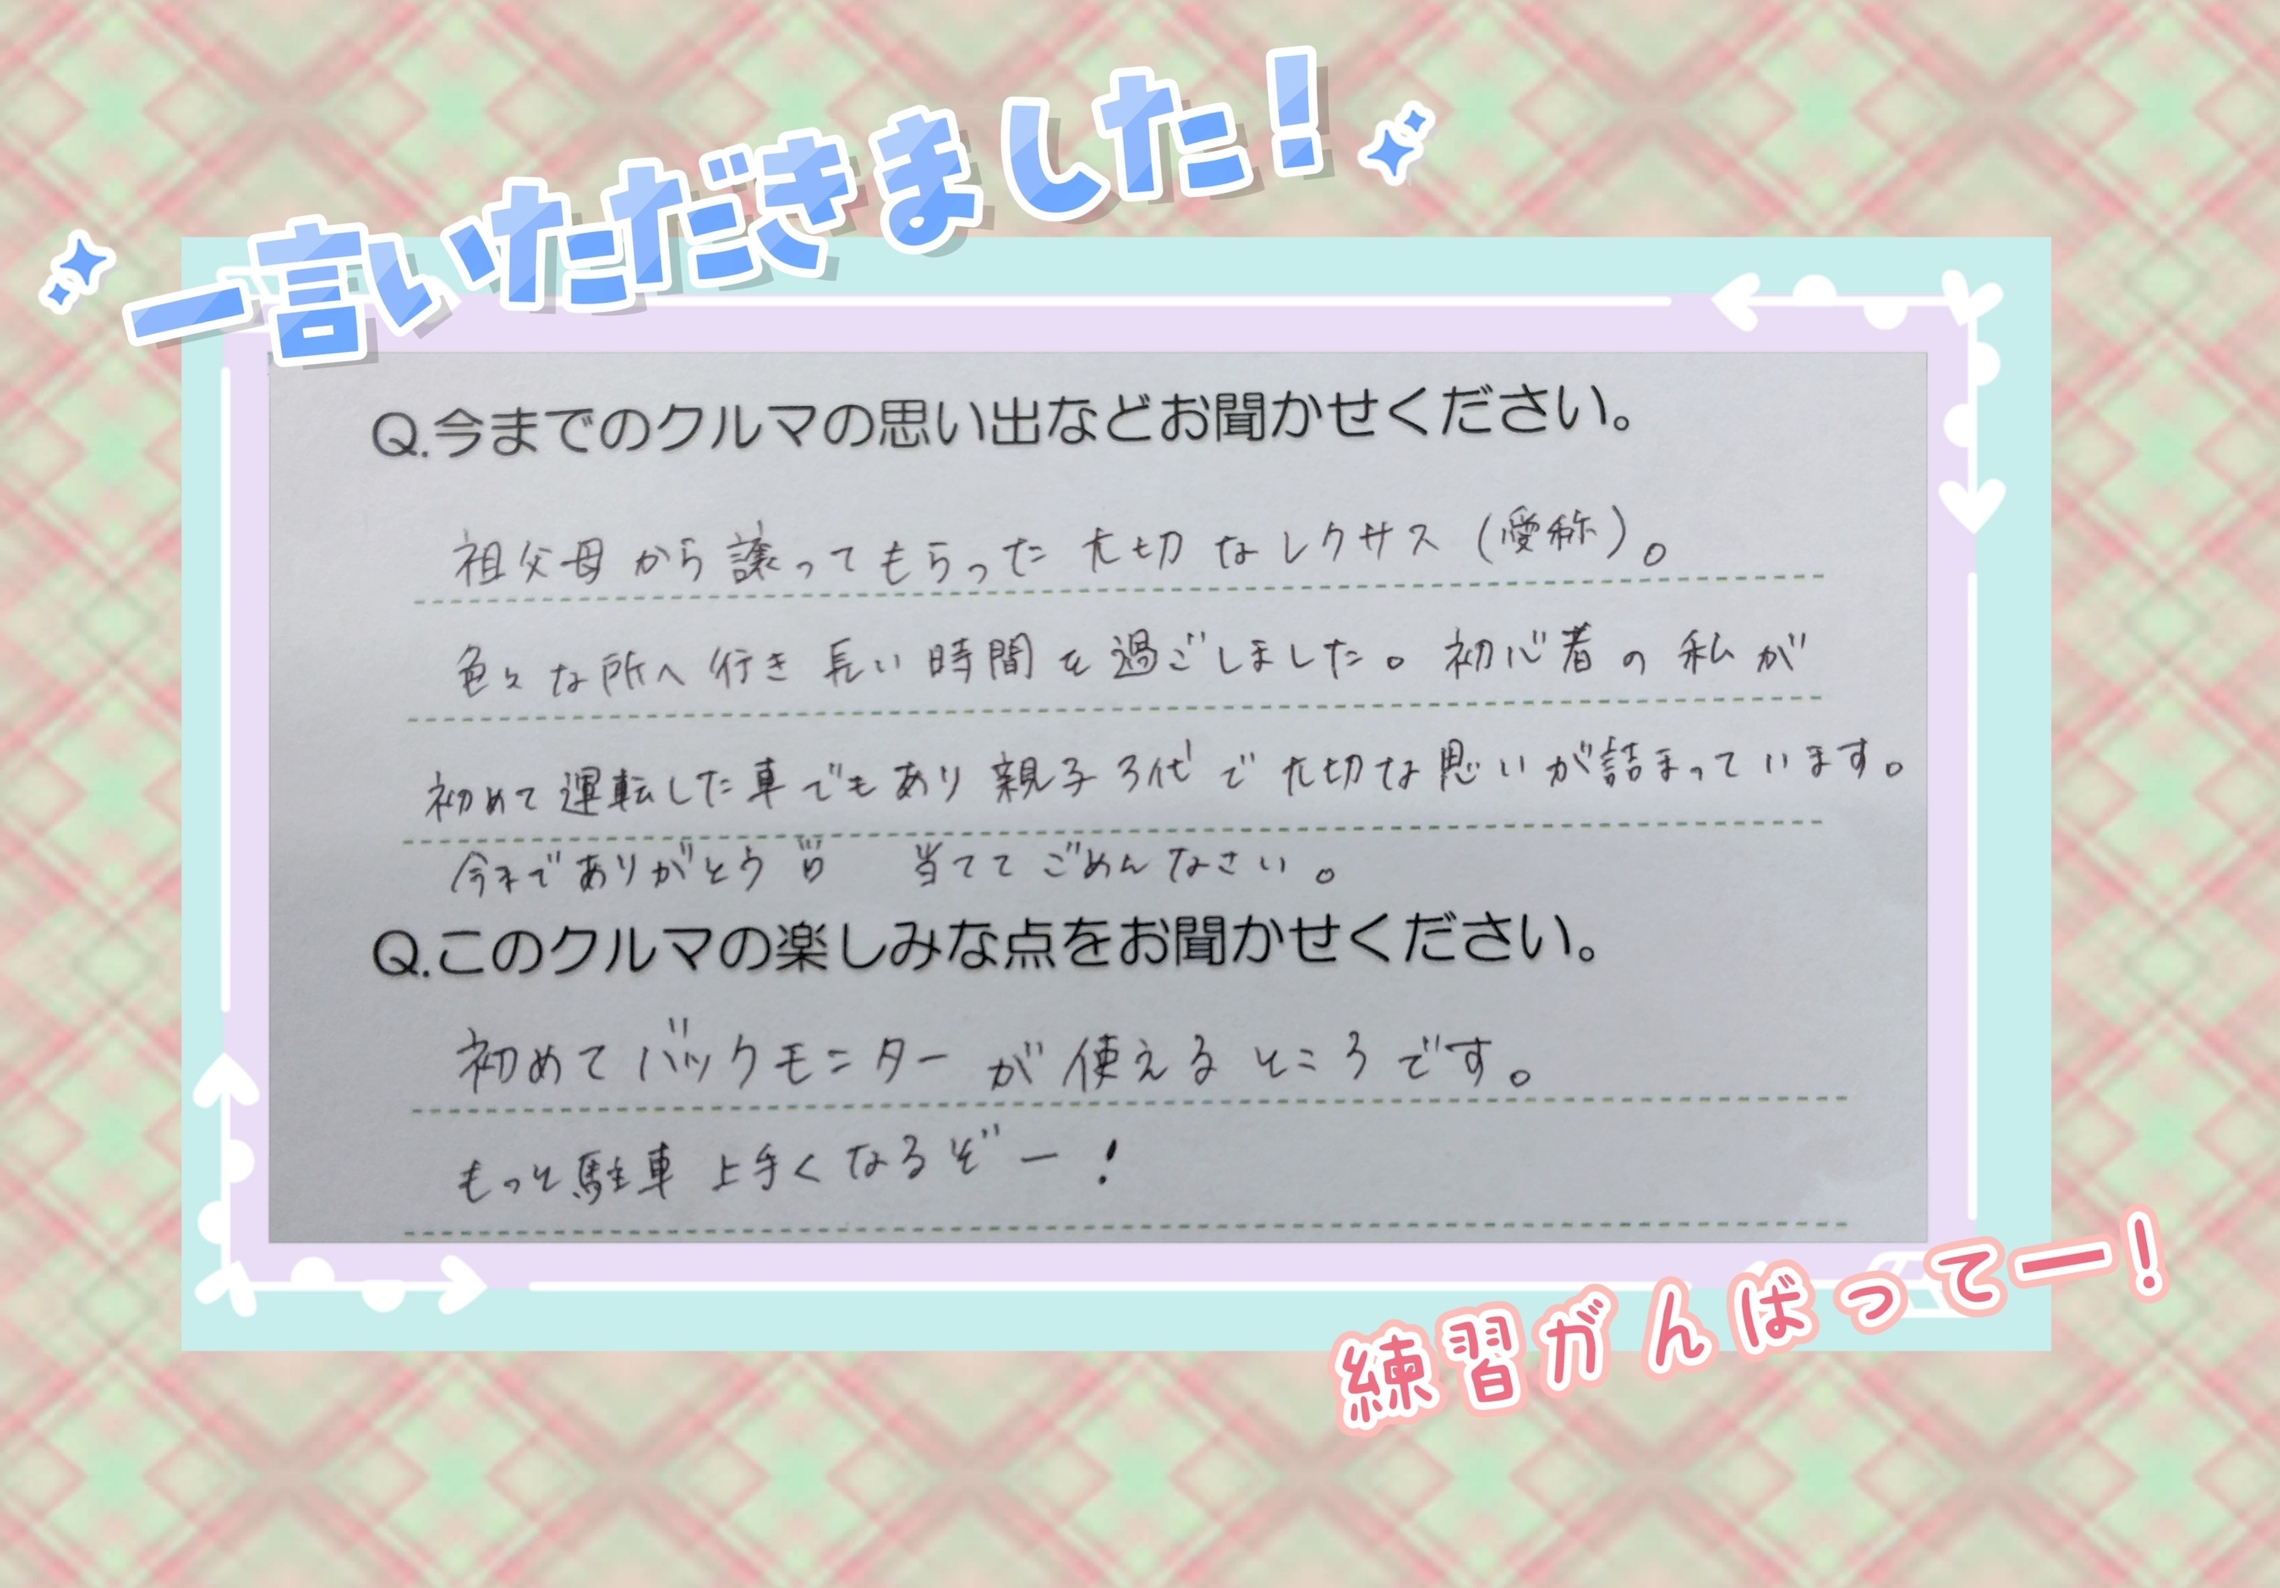 一言いただきました!
Q.今までのクルマの思い出などお聞かせください。
祖父母から譲ってもらった大切なレクサス(愛称)。
色々な所へ行き長い時間を過ごしました。初心者の私が
初めて運転した車でもあり親子3代で大切な思いが詰まっています。
今までありがとう 当ててごめんなさい。
Q.このクルマの楽しみな点をお聞かせください。
初めてバックモニターが使えるところです。
もっと駐車上手くなるぞー!
練習がんばってー!